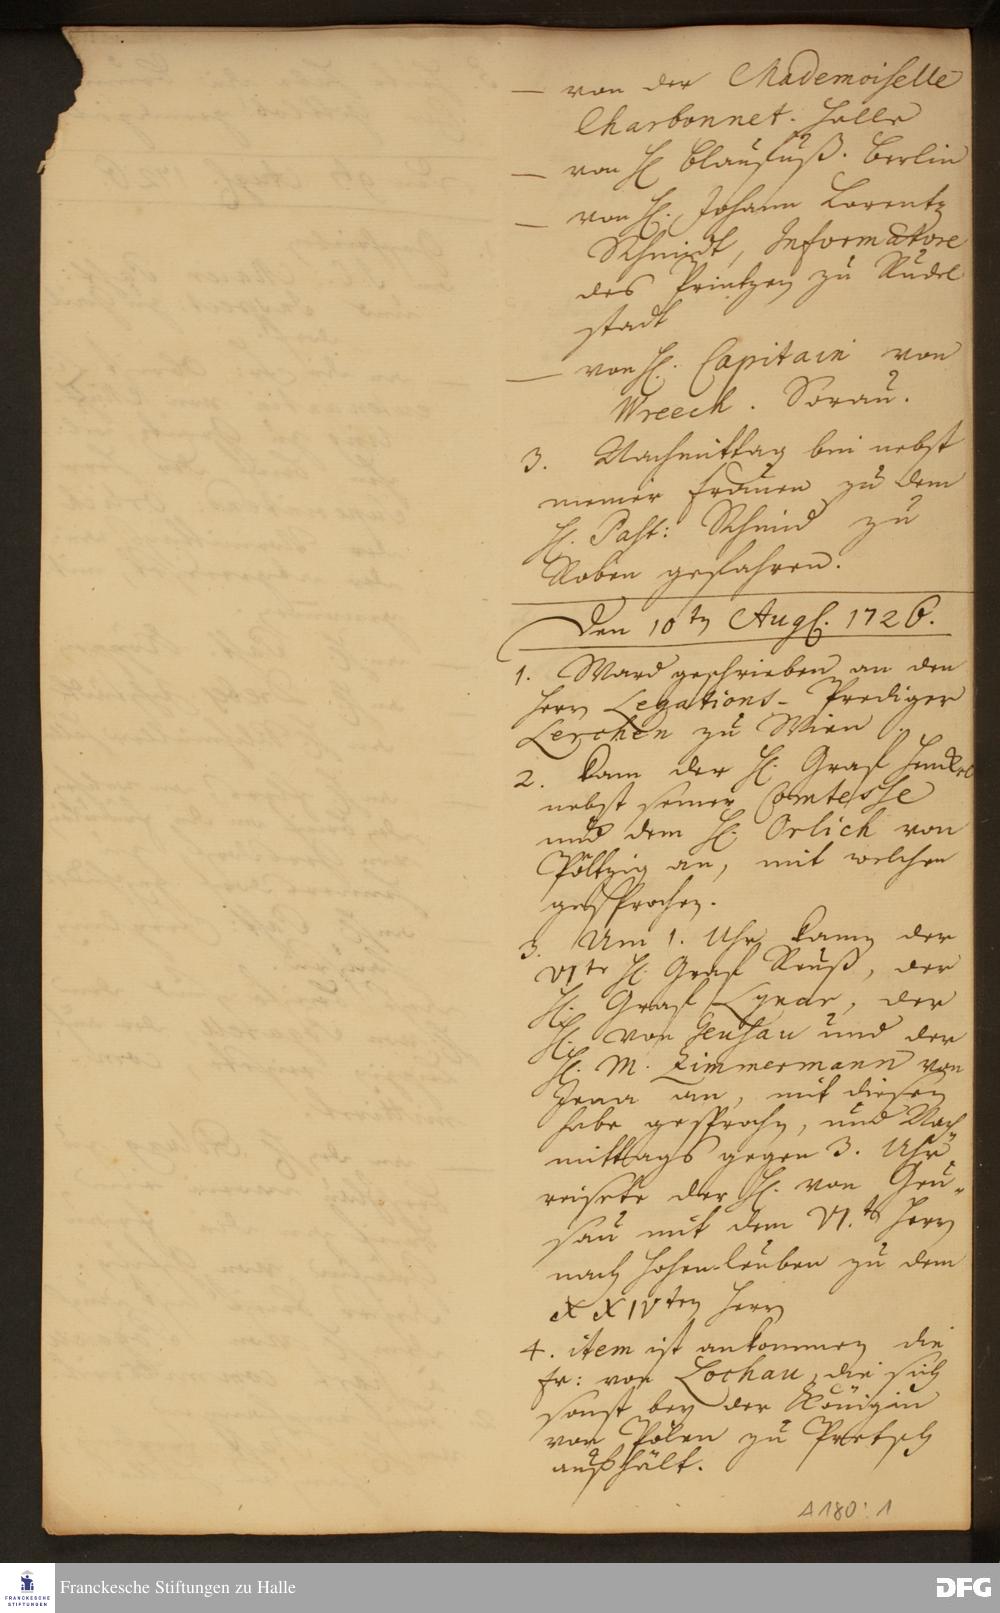 — von der Mademoiselle
Charbonnet. Halle
— von H. Blaufuß. Berlin
— von H. Johann Lorentz
Schmidt, Informatore
des Printzen zu Rudel
stadt
— von H. Capitain von
Wreech. Sorau.
3. Nachmittag bin nebst
meiner Frauen zu dem
H. Past: Schmid zu
Roben gefahren.
Den 10ten Aug. 1726.
1. Ward geschrieben an den
Herrn Legations-Prediger
Lerchen zu Wien
2. kam der H. Graf Henckel
nebst seiner Comtesse
und dem H. Orlich von
Pöltzig an, mit welchen
gesprochen.
3. Um 1. Uhr kam der
VIte H. Graf Reuß, der
H. Graf Lynar, der
H. von Geusau und der
H. M. Zimmermann von
Jena an, mit diesen
habe gesprochen, und Nach
mittags gegen 3. Uhr
reisete der H. von Geu-
sau mit dem VI.ten Herrn
nach Hohen-leuben zu dem
XXIVten Herrn
4. item ist ankommen die
Fr: von Lochau, die sich
sonst bey der Königin
von Polen zu Pretsch
aufhält.
A 180 : 1
FRANCKESCHE
STIFTUNGEN
Franckesche Stiftungen zu Halle
DFG